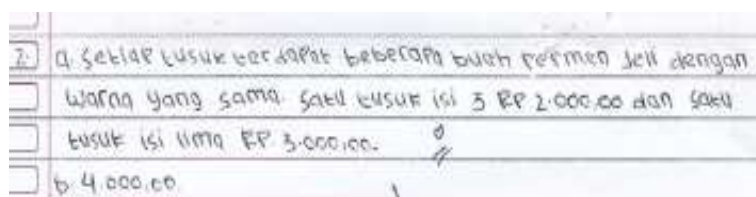 2. a. Setiap tusuk terdapat beberapa buah permen Jeli dengan
warna yang sama. Satu tusuk isi 3 RP 2.000.00 dan satu
tusuk isi lima RP. 3.000,00.
b. 4.000.00